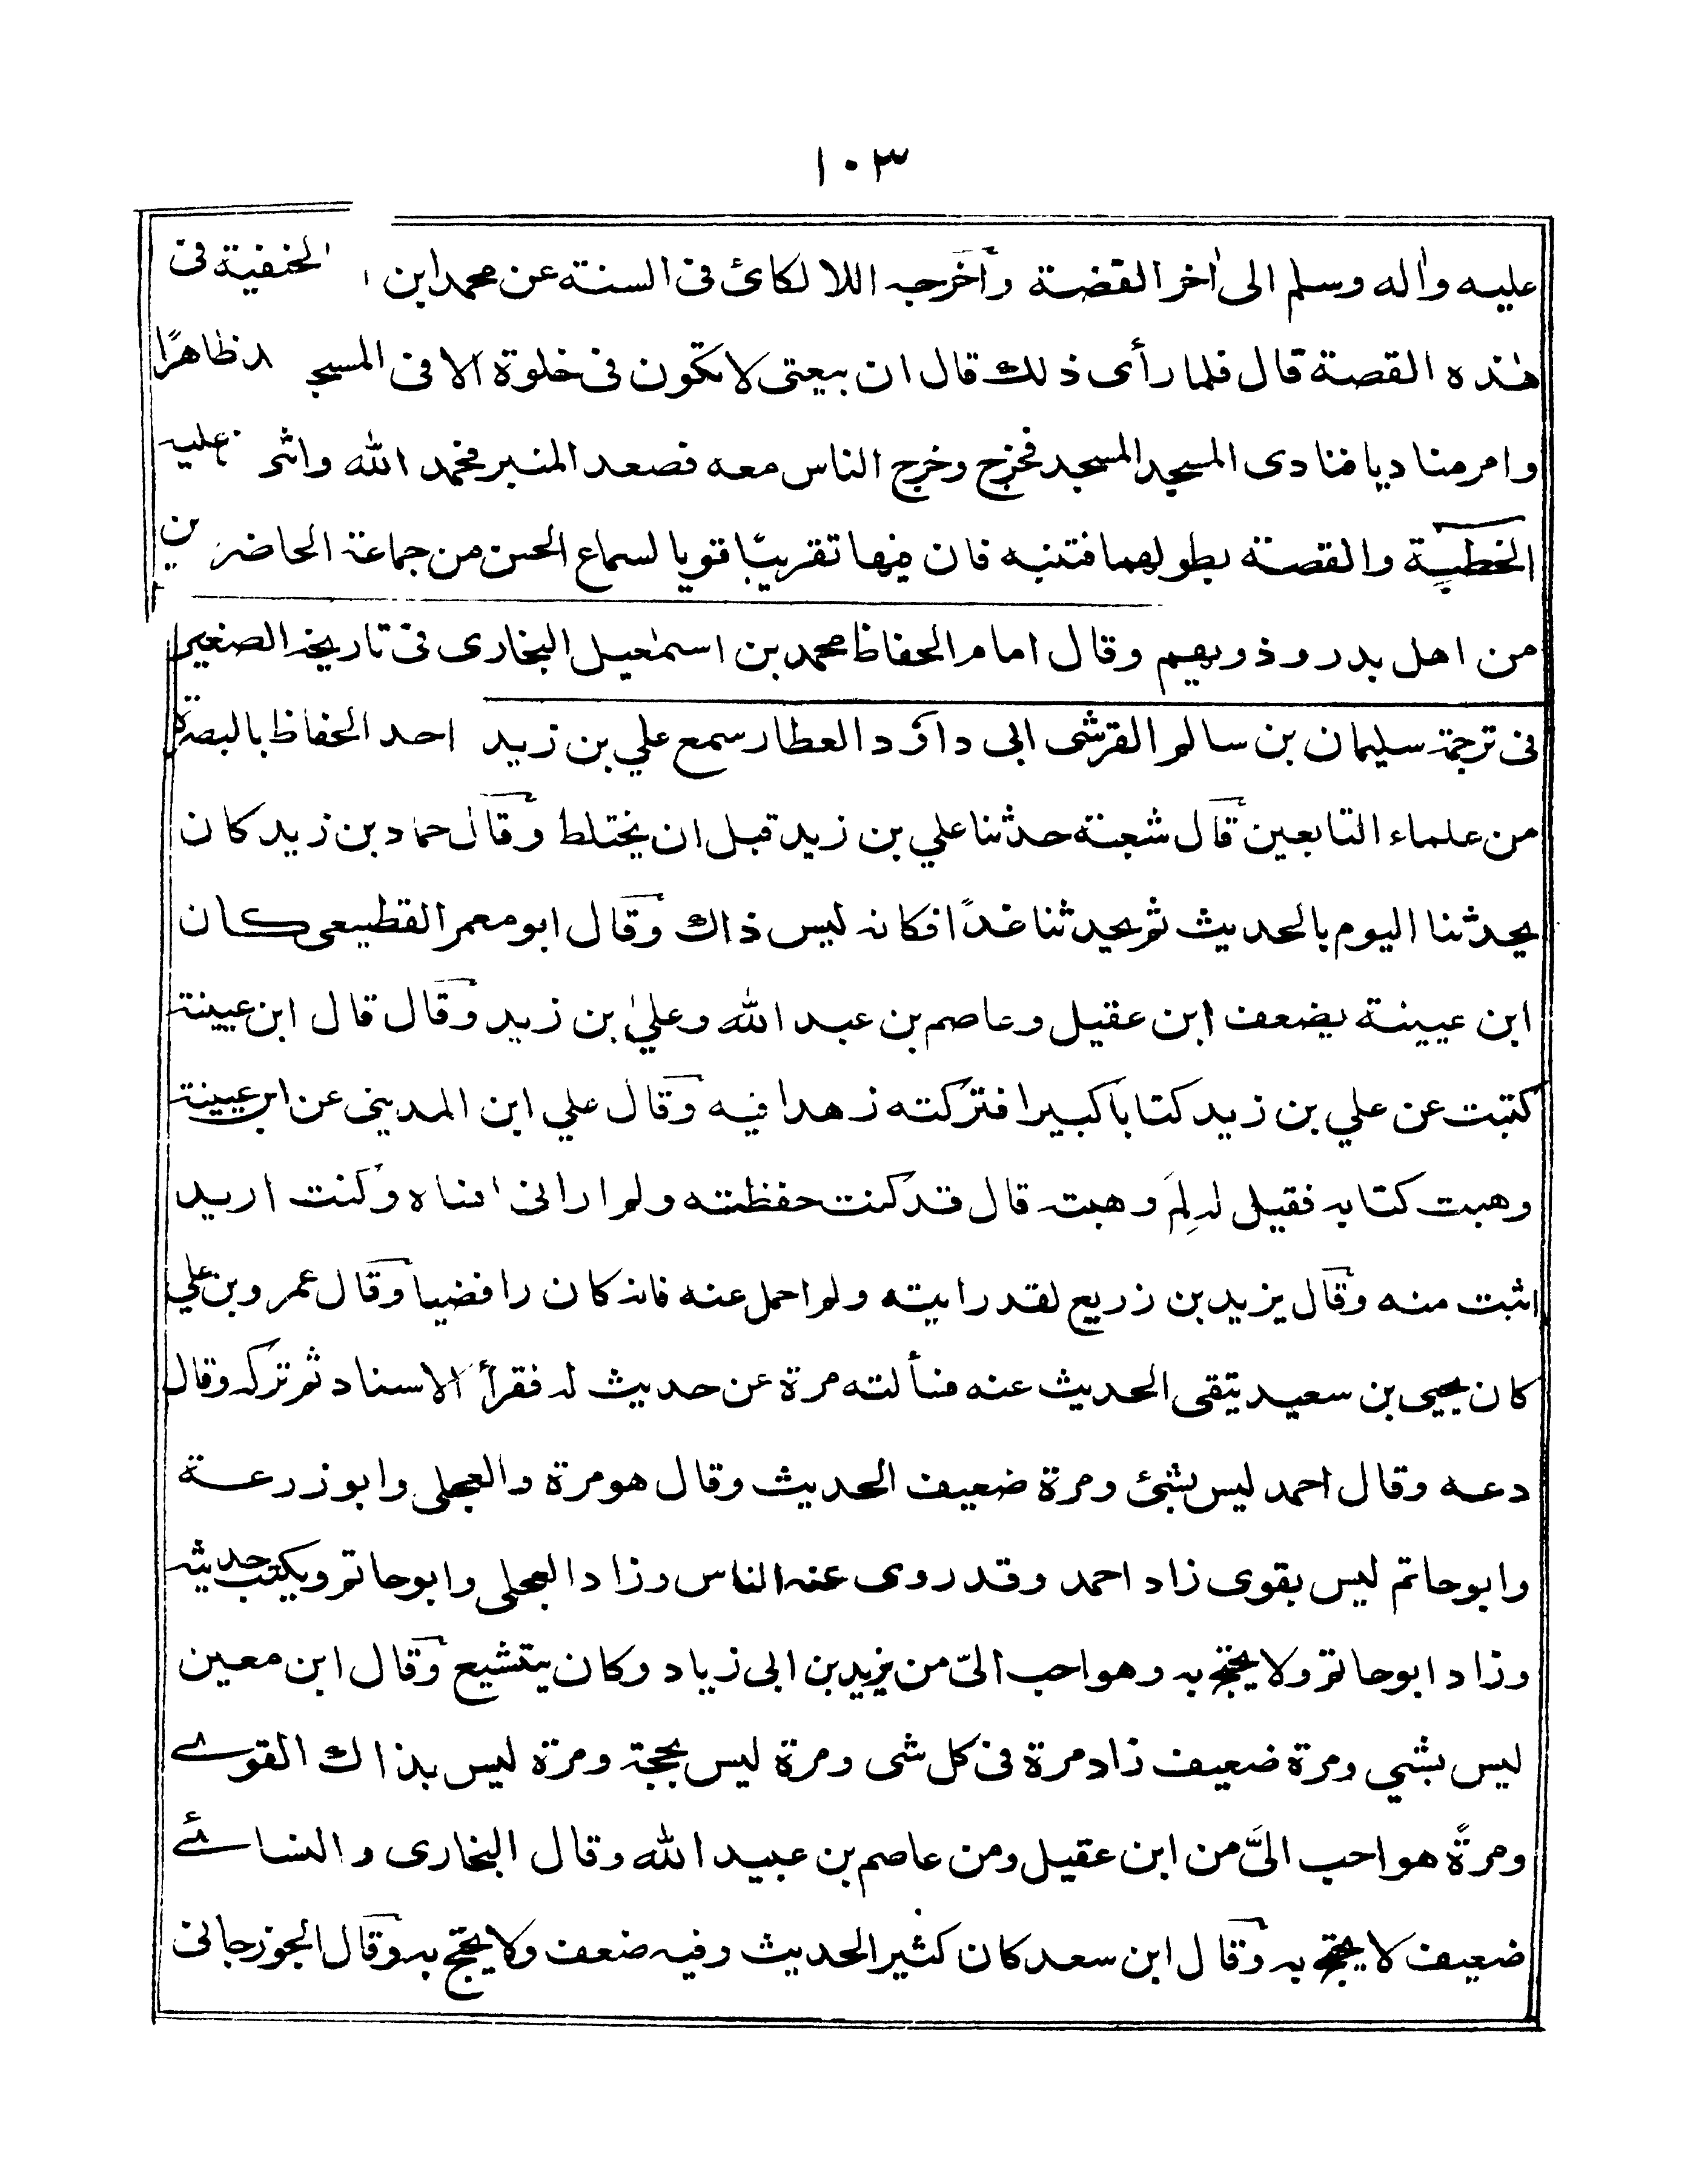 ١٠٣
عليه واٰله وسلم الى اٰخر القصة وأخرجه اللالكائ فى السنة عن محمد ابن الحنفية فى
هٰذه القصة قال فلما رأى ذلك قال ان بيعتى لا تكون فى خلوة الا فى المسجد ظاهرًا
وامر مناديا فنادى المسجد المسجد فخرج وخرج الناس معه فصعد المنبر فحمد الله واثنى عليه
الخطبة والقصة بطولهما فتنبه فان فيها تقريبًا قويا لسماع الحسن من جماعة الحاضرين
من اهل بدر وذويهم وقال امام الحفاظ محمد بن اسمٰعيل البخارى فى تاريخه الصغير
فى ترجمة سليمان بن سالم القرشى ابى داؤد العطار سمع علي بن زيد احد الحفاظ بالبصرة
من علماء التابعين قال شعبة حدثنا علي بن زيد قبل ان يختلط وقال حماد بن زيد كان
يحدثنا اليوم بالحديث ثم يحدثنا غدًا فكانه ليس ذاك وقال ابو معمر القطيعى كان
ابن عيينة يضعف ابن عقيل وعاصم بن عبد الله وعلي بن زيد وقال قال ابن عيينة
كتبت عن علي بن زيد كتابا كبيرا فتركته زهدا فيه وقال علي ابن المدينى عن ابن عيينة
وهبت كتابه فقيل له لِمَ وهبته قال قد كنت حفظته ولم ارانى انساه وكنت اريد
اثبت منه وقال يزيد بن زريع لقد رايته ولم احمل عنه فانه كان رافضيا وقال عمرو بن علي
كان يحيى بن سعيد يتقى الحديث عنه فسألته مرة عن حديث له فقرأ الاسناد ثم تركه وقال
دعه وقال احمد ليس بشئ ومرة ضعيف الحديث وقال هو مرة والعجلى وابو زرعة
وابو حاتم ليس بقوى زاد احمد وقد روى عنه الناس وزاد العجلى وابو حاتم ويكتب حديثه
وزاد ابو حاتم ولا يحتج به وهو احب الىّ من يزيد بن ابى زياد وكان يتشيع وقال ابن معين
ليس بشي ومرة ضعيف زاد مرة فى كل شى ومرة ليس بحجة ومرة ليس بذاك القوے
ومرةً هو احب الىَّ من ابن عقيل ومن عاصم بن عبيد الله وقال البخارى والنسائے
ضعيف لا يحتج به وقال ابن سعد كان كثير الحديث وفيه ضعف ولا يحتج به وقال الجوزجانى